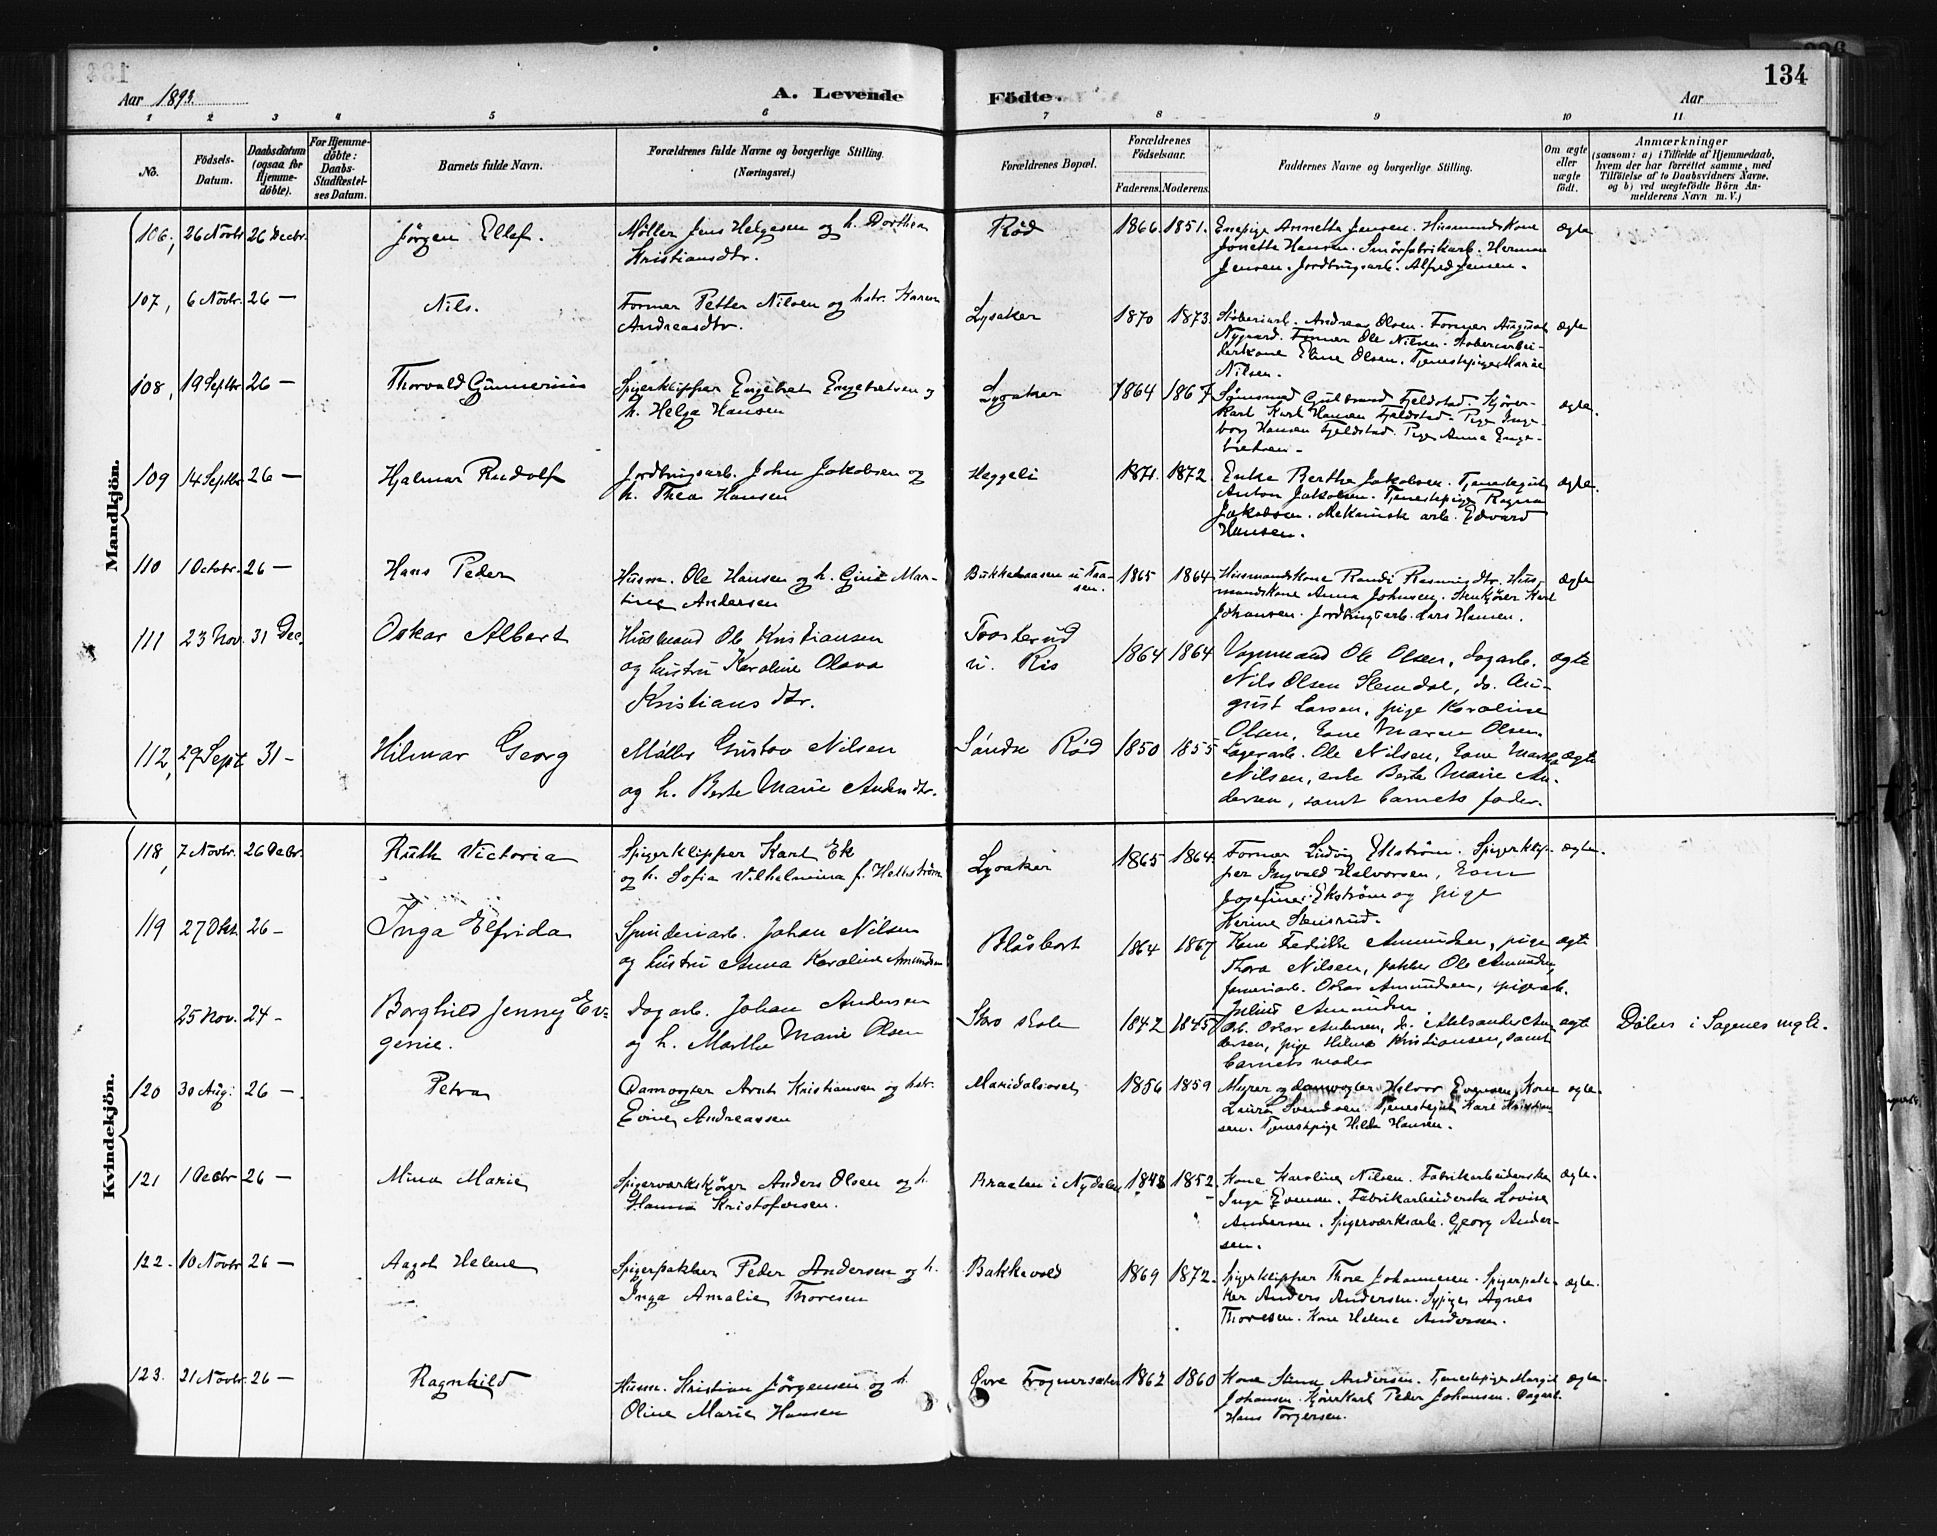 134
Aar 1893.
A. Levende Födte.
Aar
1 2 3 4 5 6 7 8 9 10 11
No.
Födsels-Datum.
Daabsdatum (ogsaa for Hjemme-döbte).
For Hjemme-döbte: Daabs-Stadfæstel-ses Datum.
Barnets fulde Navn.
Forældrenes fulde Navne og borgerlige Stilling (Næringsvei.)
Forældrenes Bopæl.
Forældrenes Födselsaar.
Faderens. Moderens.
Faddernes Navne og borgerlige Stilling.
Om ægte eller uægte födt.
Anmærkninger
(saasom: a) i Tilfælde af Hjemmedaab,
hvem der har forrettet samme, med
Tilföielse af to Daabsvidners Navne,
og b) ved uægtefödte Börn An-
melderens Navn m. V.)
Mandkjön.
106, 26 Novbr 26 Decbr. Jörgen Ellef. Møller Jens Helgesen og h. Dorthea
Kristiansdtr.
Röd 1866. 1851. Enepige Annette Jensen. Husmandskone
Jonette Hansen. Smörfabrikarb. Herman
Jensen. Jordbrugsarb. Alfred Jensen.
ægte
107, 6 Novbr. 26 — Nils. Former Petter Nilsen og hstr. Karen
Andreasdtr.
Lysaker 1870 1873. Støberiarb. Andreas Olsen. Former August
Nygaard. Former Ole Nilsen. Støberiarbei-
derkone Eline Olsen. Tjenestepige Marie
Nilsen.
ægte
108, 19 Septbr 26 — Thorvald Gunnerius Spigerklipper Engebret Engebretsen og
h. Helga Hansen
Lysaker 1864 1867 Gulbrand Fjeldstad. Kjøre-
karl Karl Hansen Fjeldstad. Pige Inge-
borg Hansen Fjeldstad. Pige Anna Enge-
bretsen.
ægte.
109 14 Septbr 26 — Hjalmar Rudolf Jordbrugsarb. John Jakobsen og
h. Thea Hansen
Heggeli 1871. 1872. Enke Berthe Jakobsen. Tjenestegut
Anton Jakobsen. Tjenestepige Ragna
Jakobsen. Mekanisk arb. Edvard
Hansen.
ægte.
110 1 Octobr. 26 — Hans Peder Husm. Ole Hansen og h. Gina Mar-
tine Andersen
Bukkehaasen u. Taa-
sen.
1865 1864 Husmandskone Randi Rasmusdtr. Hus-
mandskone Anna Johnsen. Stenkjører Karl
Johansen. Jordbrugsarb. Lars Hansen.
ægte
111 23 Nov. 31 Dec. Oskar Albert Husmand Ole Kristiansen
og hustru Karoline Olava
Kristiansdtr.
u. Ris
1864 1864 Vognmand Ole Olsen, dagarb.
Nils Olsen Slemdal, do. Au-
gust Larsen, pige Karoline
Olsen, kone Maren Olsen.
ægte
112, 29 Sept 31 — Hilmar Georg Møller Gustav Nilsen
og h. Berte Marie Andersdtr.
Söndre Röd 1850 1855 Lagerarb. Ole Nilsen, kone Marthe
Nilsen, enke Berte Marie An-
dersen, samt barnets fader.
ægte
Kvindekjön.
118, 7 Novbr. 26 Decbr. Ruth Victoria Spigerklipper Karl Ek
og h. Sofia Vilhelmina f. Hellström
Lysaker 1865 1864 Former Ludvig Ekström. Spigerklip-
per Ingvald Halvorsen, kone
Josefine Ekstrøm og pige
Kerine Stensrud.
ægte.
119 27 Okt. 26 — Inga Elfrida Spinderiarb. Johan Nilsen
og hustru Anna Karoline Amundsen
Blåsbort 1864 1867 Kone Fredrikke Amundsen, pige
Thora Nilsen, pakker Ole Amundsen,
arb. Oskar Amundsen, spigerarb.
Amundsen.
ægte
25 Nov. 24 — Borghild Jenny Ev-
genie.
dagarb. Johan Andersen
og h. Marthe Marie Olsen
Skole 1842 1845 Arb. Oskar Andersen, do. Aleksander An-
dersen, pige Helma Kristiansen, samt
barnets moder
ægte Döbt i Sagenes mgh.
120 30 Aug. 26 — Petra Damvogter Arnt Kristiansen og hstr.
Evine Andreassen
Maridalsoset 1856 1859 Murer og damvogter Halvor Evensen, Kone
Laura Svendsen. Tjenestegut Karl Kristian-
sen. Tjenestepige Hilda Hansen.
ægte.
121 1 Decbr 26 — Mina Marie Spigerværkskjører Anders Olsen og h.
Hanna Kristofersen.
Braaten i Nydalen 1848 1852 Kone Karoline Nilsen. Fabrikarbeiderske
Inga Evensen. Fabrikarbeiderske Lovise
Andersen. Spigerværksarb. Georg Ander-
sen.
ægte.
122. 10 Novbr 26 — Aagot Helene Spigerpakker Peder Andersen og h.
Inga Amalie Thoresen
Bakkevold 1869 1872. Spigerklipper Thore Johannesen. Spigerpak-
ker Anders Andersen. Sypige Agnes
Thoresen. Kone Helene Andersen.
ægte.
123. 21 Novbr. 26 — Ragnhild Husm. Kristian Jörgensen og h.
Oline Marie Hansen
Övre Frognersæter 1862 1860 Kone Stina Andersen. Tjenestepige Margit
Johansen. Kjørekarl Peder Johansen. Dagarb.
Hans Torgersen.
ægte.